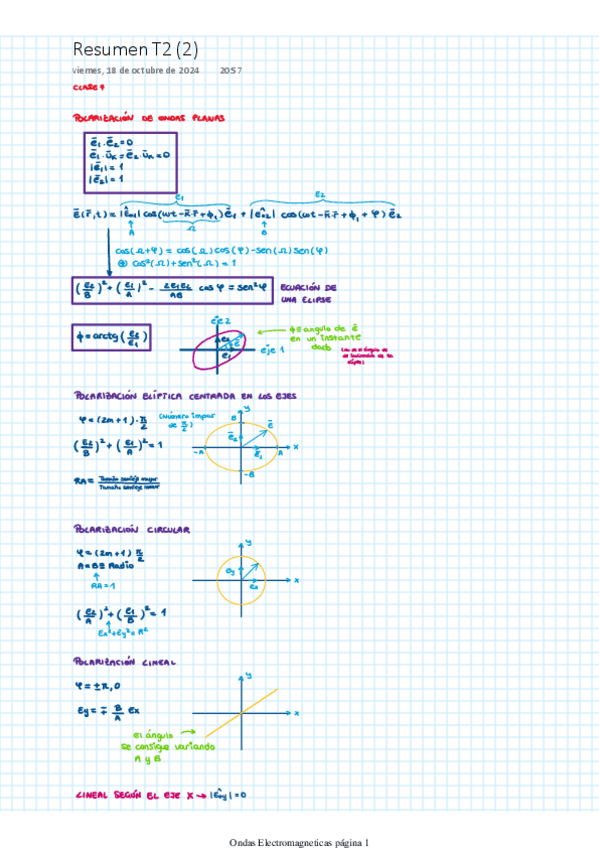 Resumen T2 (2)
viernes, 18 de octubre de 2024 20:57
CLASE 7
POLARIZACIÓN DE ONDAS PLANAS
ē₁·ē₂=0
ē₁·ūₖ=ē₂·ūₖ=0
|ē₁|=1
|ē₂|=1
e₁ e₂
cos(Ω+φ) = cos(Ω)cos(φ)-sen(Ω)sen(φ)
cos²(Ω)+sen²(Ω)=1
(e₂/B)²+(e₁/A)²- 2e₁e₂/AB cos φ = sen²φ
ECUACIÓN DE
UNA ELIPSE
ϕ=arctg(e₂/e₁)
eje 2
eje 1
ϕ≡angulo de ē
en un instante
dado
POLARIZACIÓN ELÍPTICA CENTRADA EN LOS EJES
φ=(2m+1)·π/2
(Número impar
de π/2)
(e₂/B)²+(e₁/A)²=1
RA= Tamaño semieje mayor/Tamaño semieje menor
y
B
ē
ē₂
-A ē₁ A x
-B
POLARIZACIÓN CIRCULAR
φ=(2m+1) π/2
A=B≡Radio
RA=1
y
ey
ex x
(e₂/A)²+(e₁/B)²=1
Ex²+Ey²=A²
POLARIZACIÓN LINEAL
φ=±π,0
Ey=∓ B/A Ex
y
x
El ángulo
se consigue variando
A y B
LINEAL SEGÚN EL EJE X → |êy|=0
Ondas Electromagneticas página 1